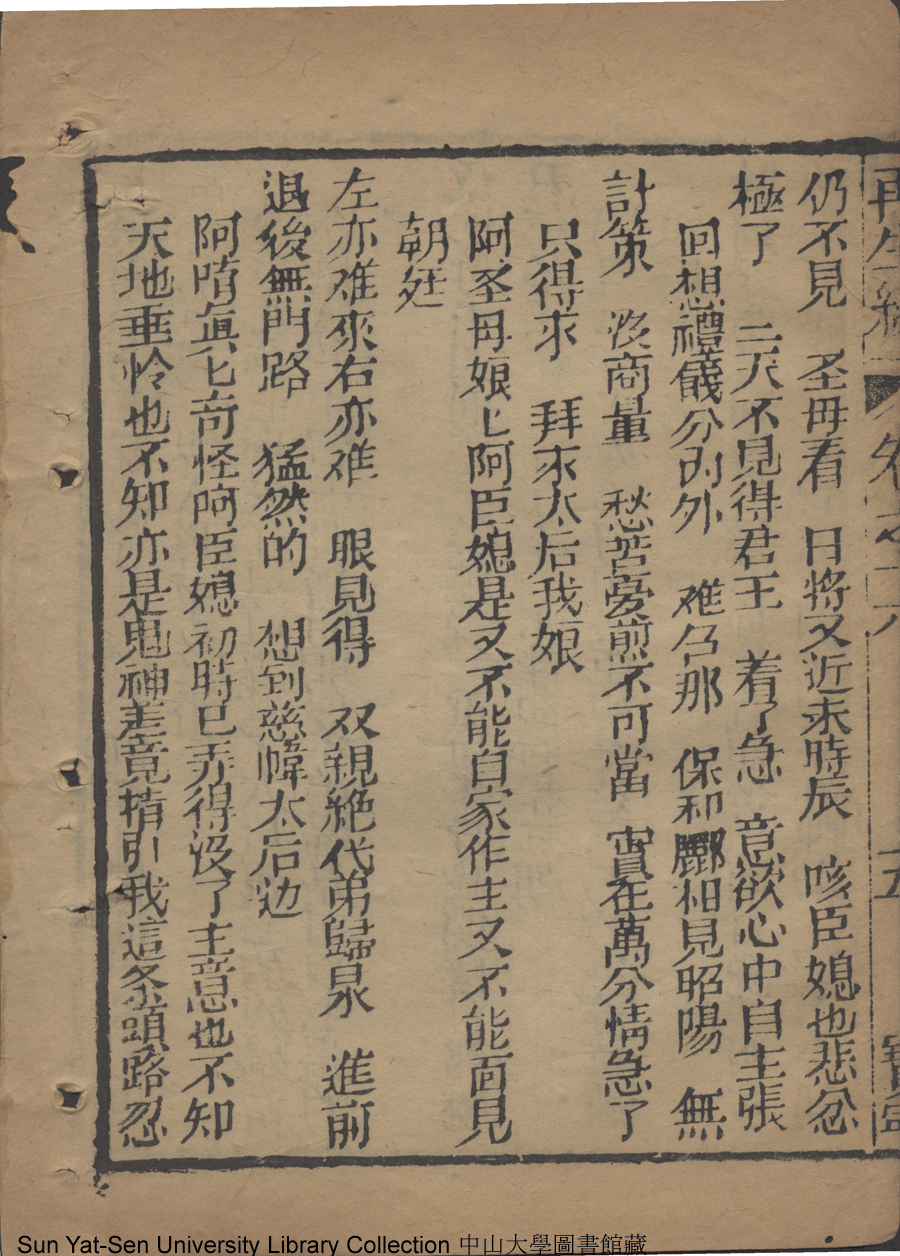 再生緣 卷之十六 五
仍不見 圣母看 日将又近未時辰 咳臣媳也悲忿
極了 二天不見得君王 着了急 意欲心中自主張
回想禮儀分内外 难召那 保和酈相見昭陽 無
計策 没商量 愁苦憂煎不可當 實在萬分情急了
只得求 拜求太后我娘
阿圣母娘匕阿臣媳是又不能自家作主又不能面見
朝廷
左亦难來右亦难 眼見得 双親绝代弟歸泉 進前
退後無門路 猛然的 想到慈幃太后边
阿唷眞匕奇怪阿臣媳初時已弄得没了主意也不知
天地垂怜也不知亦是鬼神差竟指引我這条頭路忍
Sun Yat-Sen University Library Collection 中山大學圖書館藏